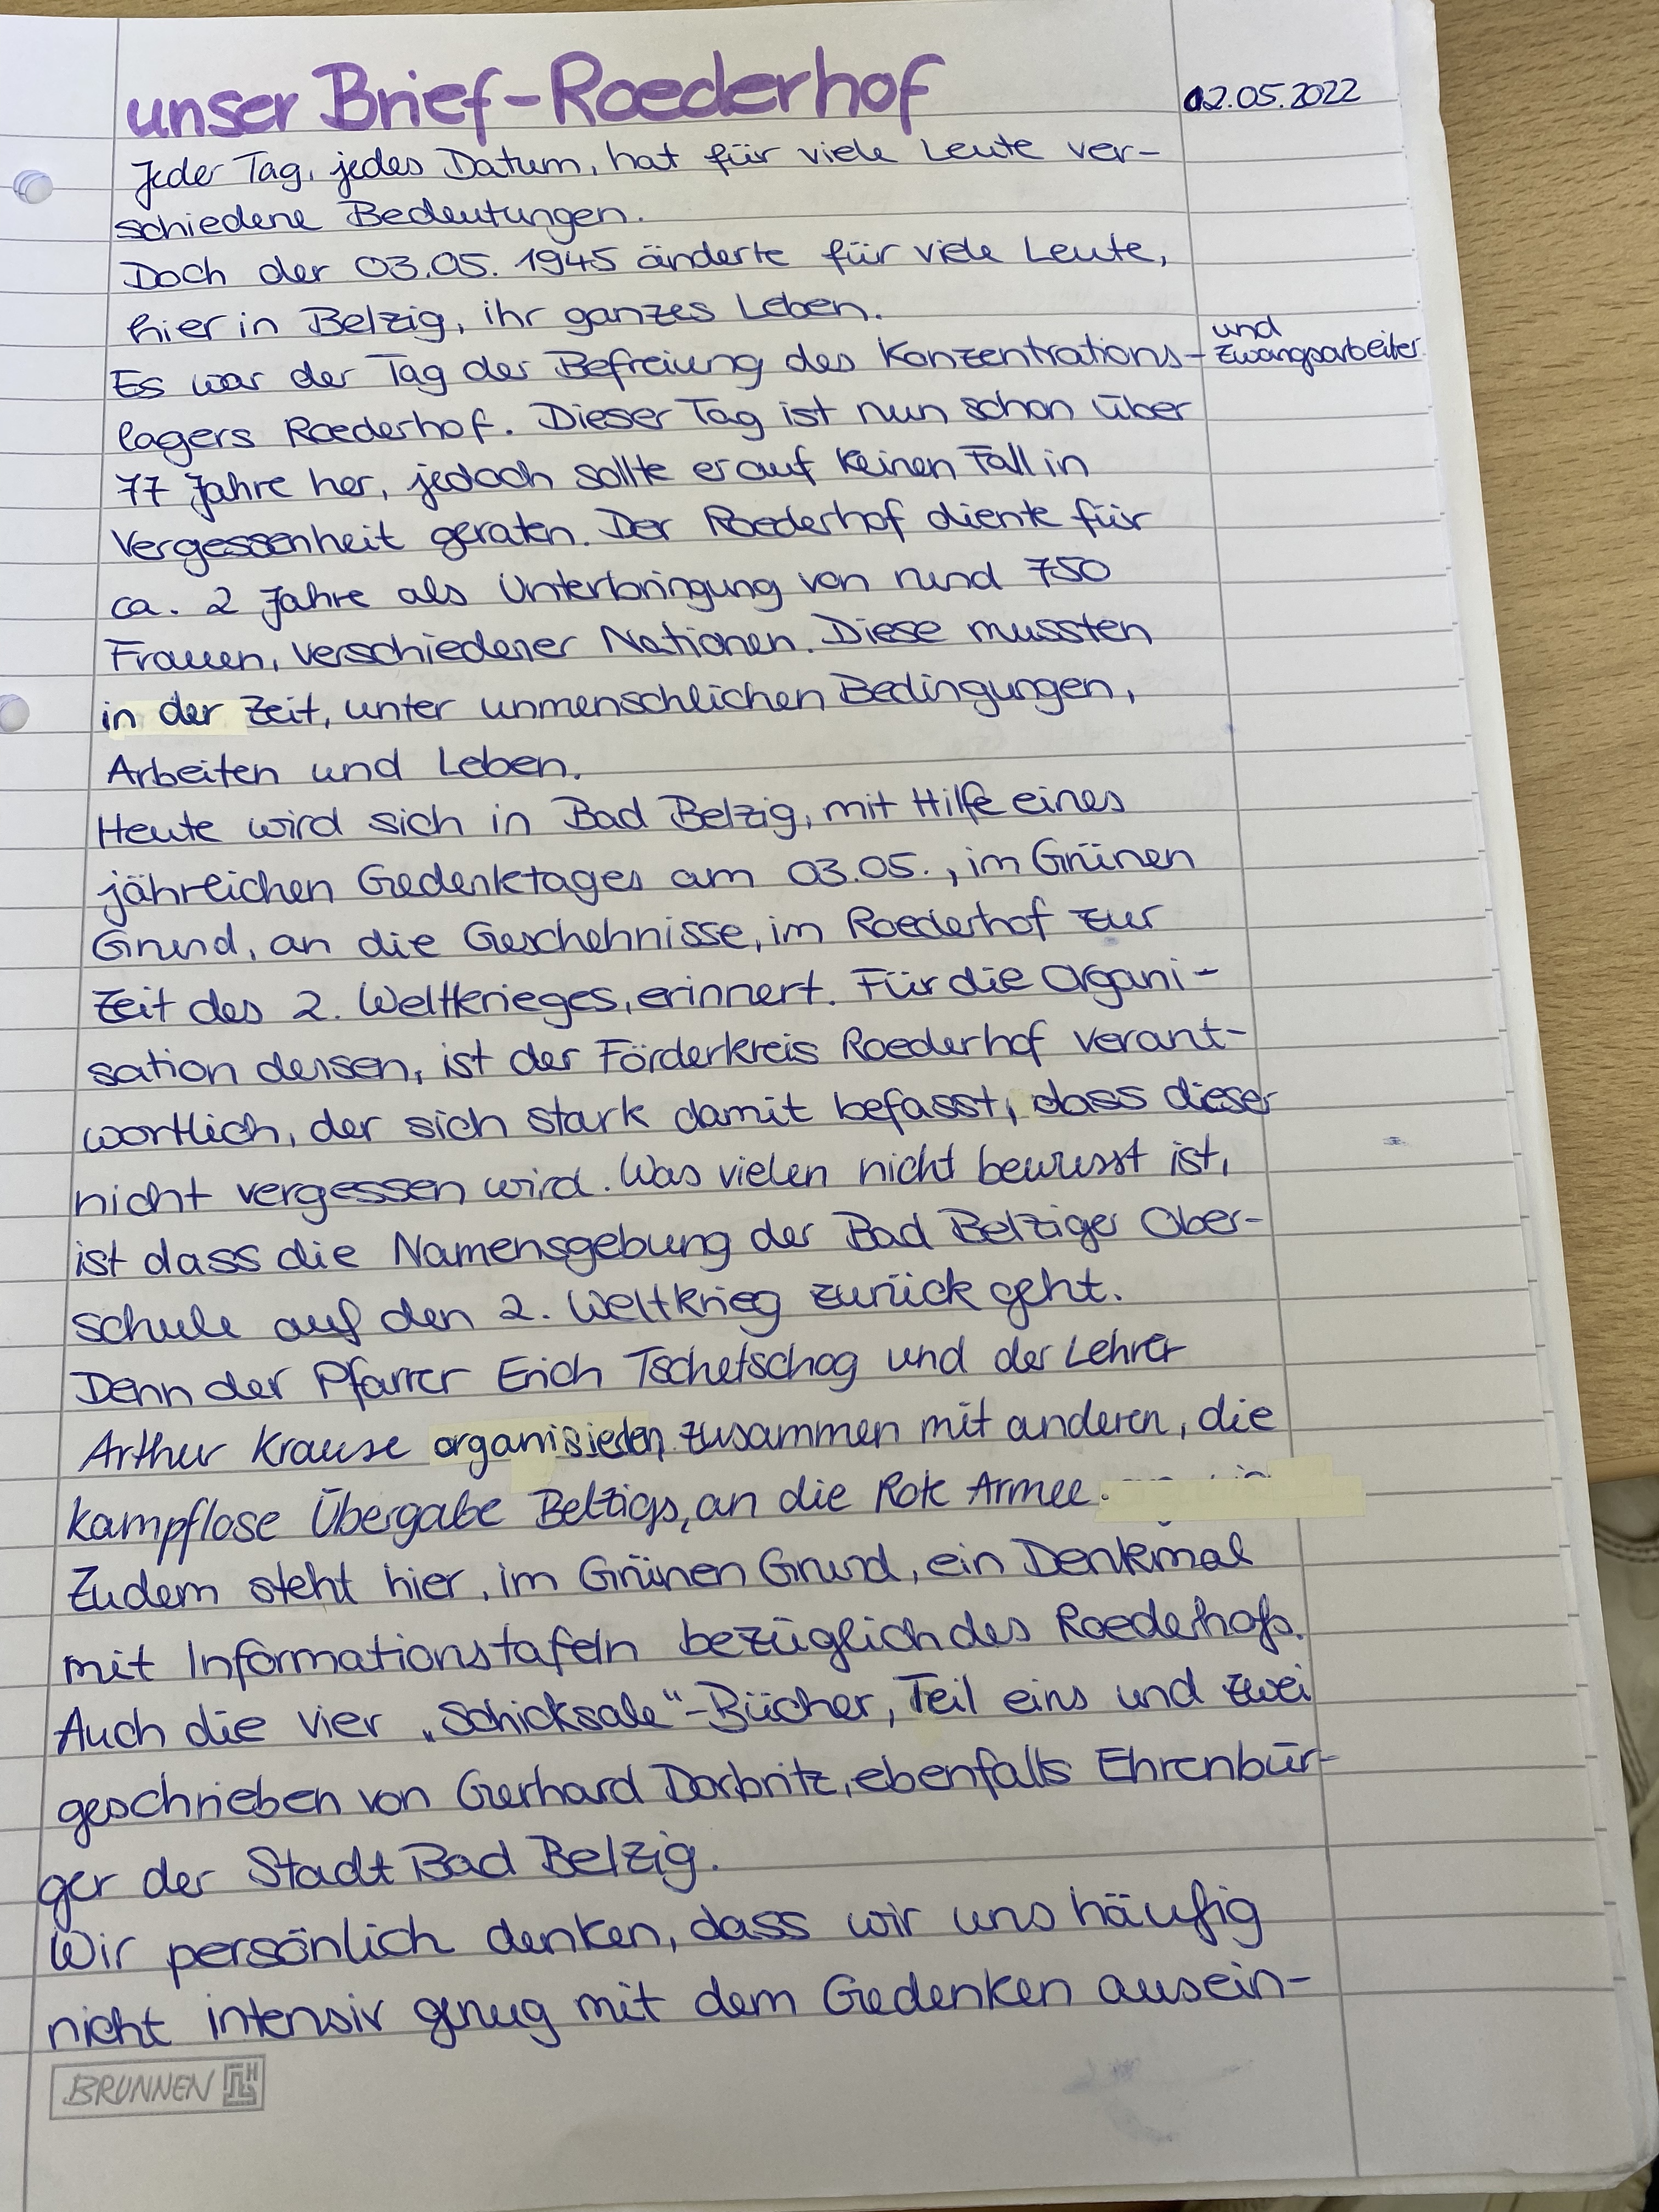 unser Brief-Roederhof
02.05.2022
Jeder Tag, jedes Datum, hat für viele Leute ver-
schiedene Bedeutungen.
Doch der 03.05.1945 änderte für viele Leute,
hier in Belzig, ihr ganzes Leben.
Es war der Tag der Befreiung des Konzentrations-
und
Zwangsarbeiter
lagers Roederhof. Dieser Tag ist nun schon über
77 Jahre her, jedoch sollte er auf keinen Fall in
Vergessenheit geraten. Der Roederhof diente für
ca. 2 Jahre als Unterbringung von rund 750
Frauen, verschiedener Nationen. Diese mussten
in der Zeit, unter unmenschlichen Bedingungen,
Arbeiten und Leben.
Heute wird sich in Bad Belzig, mit Hilfe eines
jährlichen Gedenktages am 03.05., im Grünen
Grund, an die Geschehnisse, im Roederhof zur
Zeit des 2. Weltkrieges, erinnert. Für die Organi-
sation dessen, ist der Förderkreis Roederhof verant-
wortlich, der sich stark damit befasst, dass dieser
nicht vergessen wird. Was vielen nicht bewusst ist,
ist dass die Namensgebung der Bad Belziger Ober-
schule auf den 2. Weltkrieg zurück geht.
Denn der Pfarrer Erich Tschetschog und der Lehrer
Arthur Krause organisierten, zusammen mit anderen, die
kampflose Übergabe Belzigs, an die Rote Armee.
Zudem steht hier, im Grünen Grund, ein Denkmal
mit Informationstafeln bezüglich des Roederhofs.
Auch die vier „Schicksale“-Bücher, Teil eins und zwei
geschrieben von Gerhard Dorbritz, ebenfalls Ehrenbür-
ger der Stadt Bad Belzig.
Wir persönlich denken, dass wir uns häufig
nicht intensiv genug mit dem Gedenken ausein-
BRUNNEN